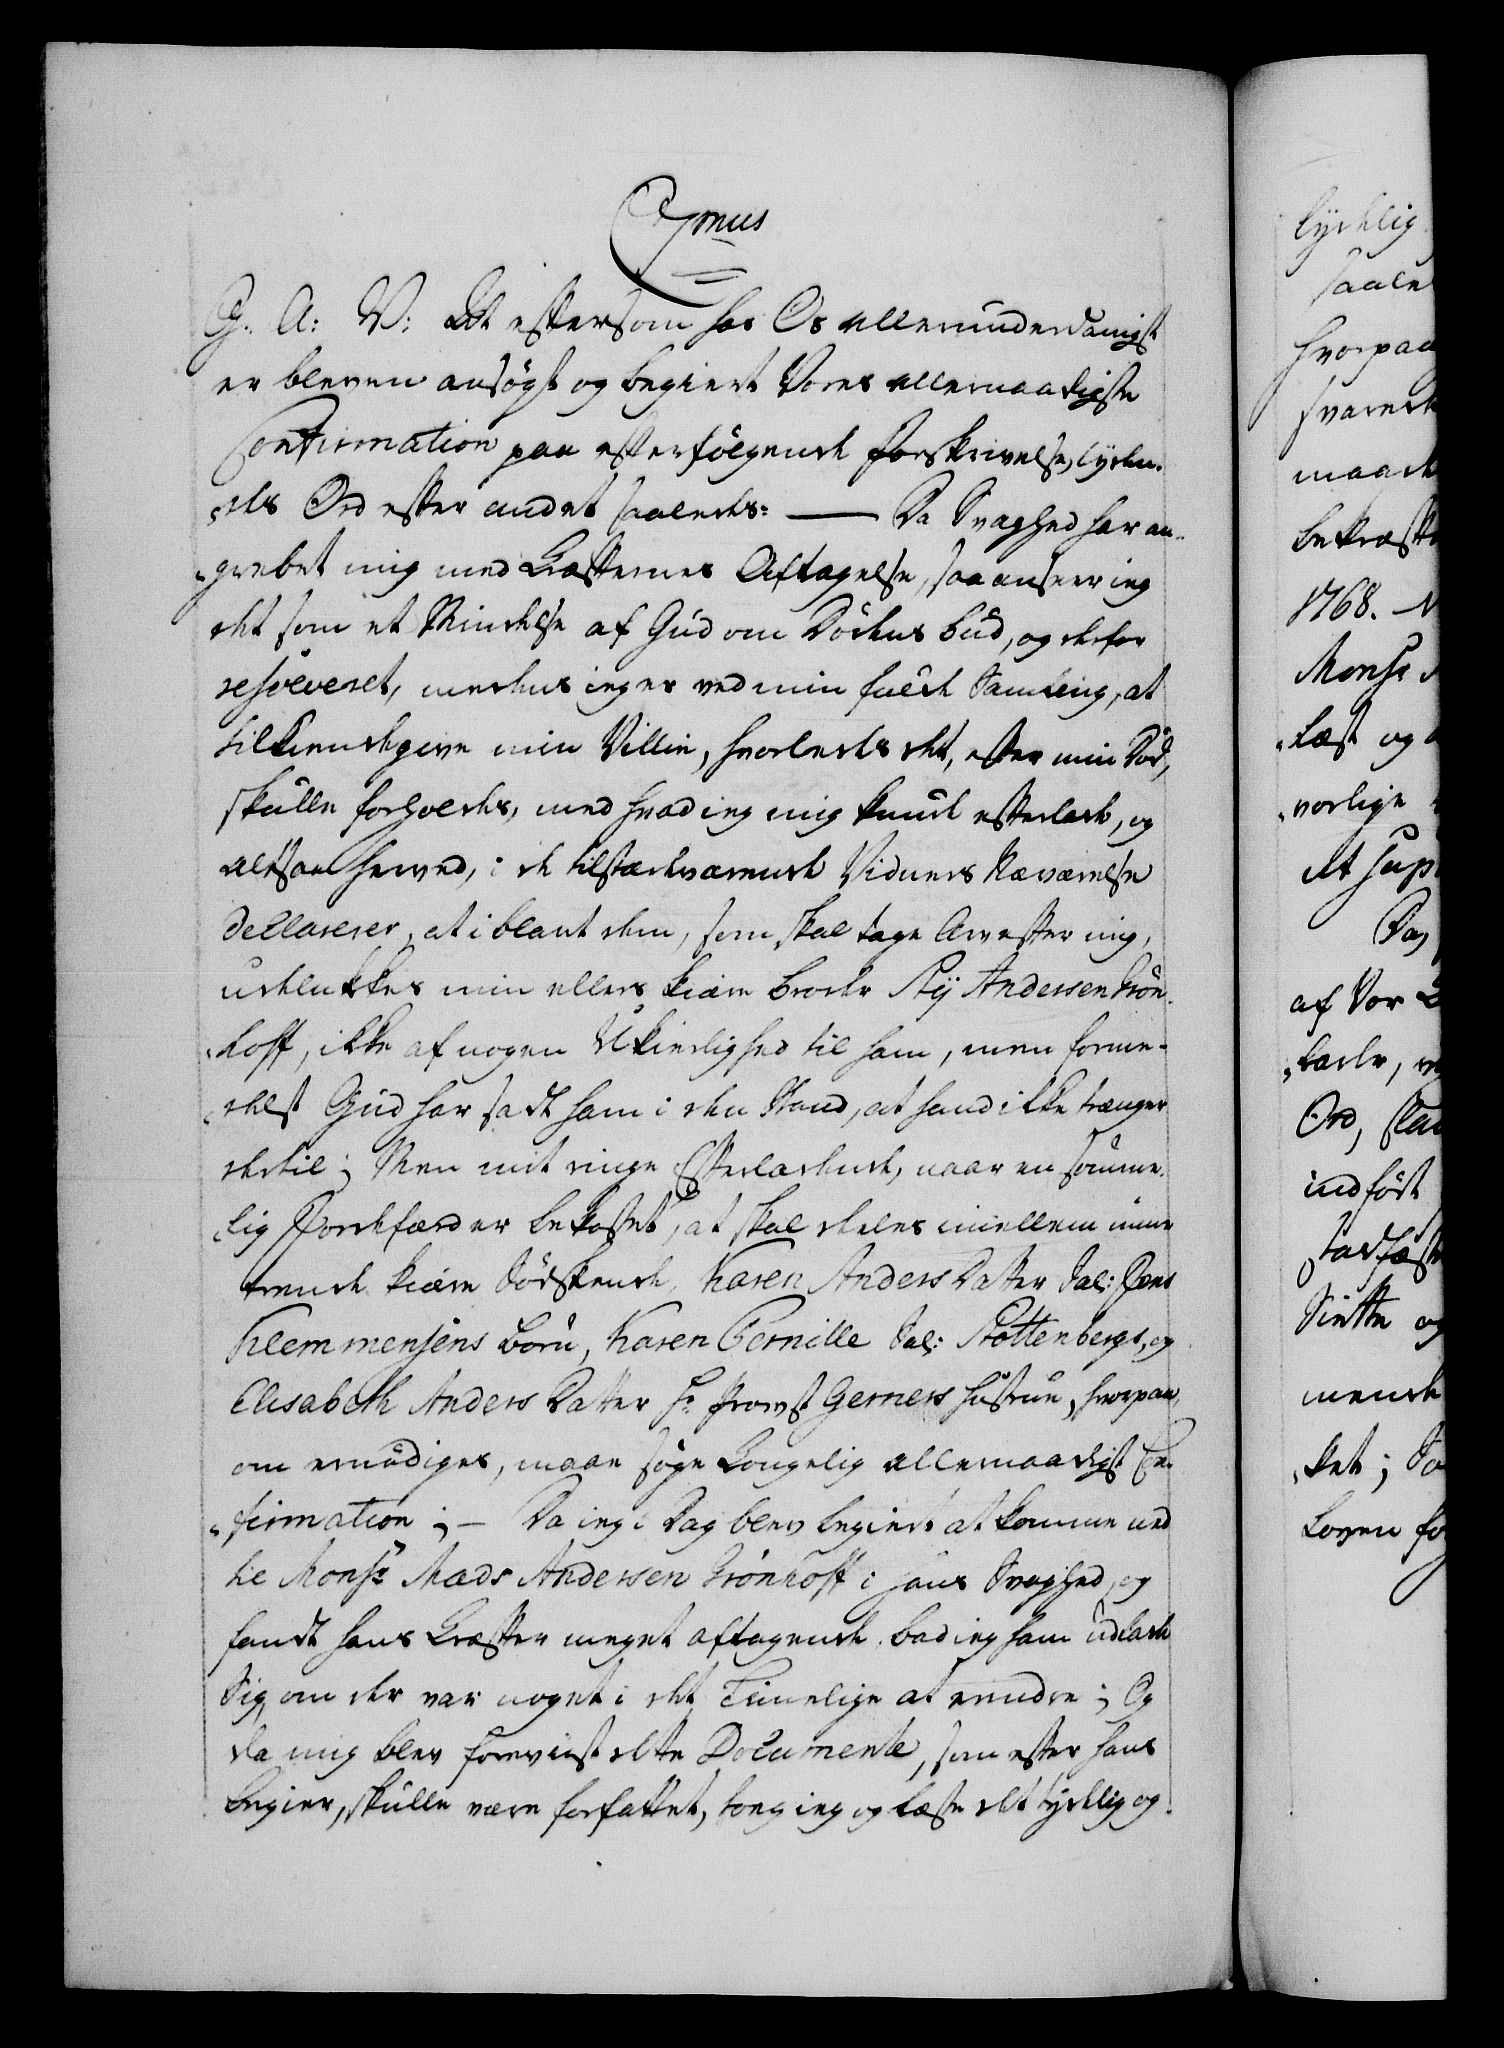 C 7mus
G. A: V: At eftersom hos Os allerunderdanigst
er bleven ansøgt og begiert Vores allernaadigste
Confirmation paa efterfølgende Forskrivelse, lyden-
„des Ord efter andet saaledes: — Da Svaghed har an-
„grebet mig med Kræfternes Aftagelse, saa anseer ieg
det som et Mindelse af Gud om Dødens bud, og derfor
resolveret, medens ieg er ved min fulde Samling, at
tilkiendegive min Villie, hvorledes det, efter min Død,
skulle forholdes, med hvad ieg mig kunde efterlade, og
altsaa herved, i de tilstædeværende Vidners Nærværelse
declarerer, at i blant dem, som skal tage Arv efter mig,
udelukkes min ellers kiære broder Stij Andersen Grøn-
„hoff, ikke af nogen Ukierlighed til ham, men forme-
„delst Gud har sadt ham i den Stand, at hand ikke trænger
dertil; Men mit ringe Efterladende, naar en sømme-
„lig Jordefærd er bekostet, at skal deles imellem mine
trende kiære Sødskende, Karen Anders Datter Sal: Jens
Klemmensens børn, Karen Pernille Sal: Stottenbergs, og
Elisabeth Anders Datter Hr Provst Gerners hustrue, hvorpaa,
om ernødiges, maae søge Kongelig allernaadigst Con-
„firmation; — Da ieg i Dag blev begiert at komme ned
til Monsr Mads Andersen Grønhoff i hans Svaghed, og
fandt hans Kræfter meget aftagende, bad ieg ham udlade
Sig, om der var noget i det Timelige at erindre; Og
da mig blev foreviist dette Documente, som efter hans
Begier, skulle være forfattet, tog ieg og læste det tydelig og
lydelig
saale
hvorpaa
svarede
maade
bekræfte
1768.
Monsr
„læst og
„vorlige
At sup
Da,
af Vor
„ladte,
Ord,
indført
stadfæste
Sistte og
mende
„ket; Saa
Loven for